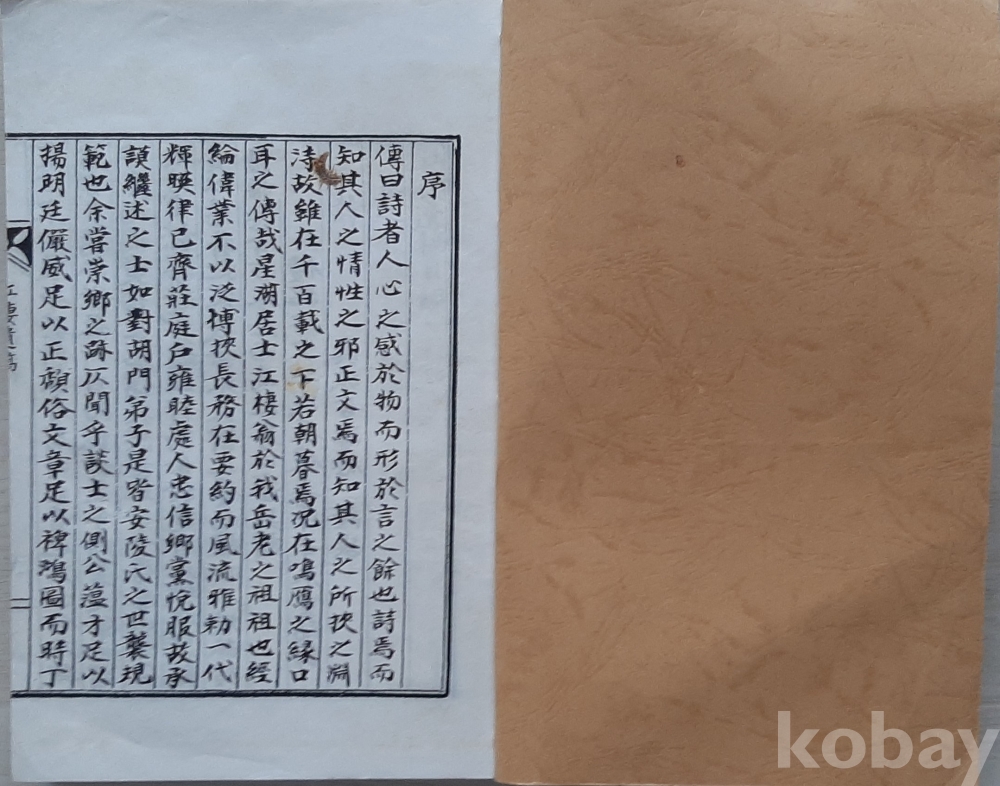 序
傳曰詩者人心之感於物而形於言之餘也詩焉而
知其人之情性之邪正文焉而知其人之所抆之淵
洔故雖在千百載之下若朝暮焉況在鳴鴈之緣口
耳之傳哉星湖居士江棲翁於我岳老之祖祖也經
綸偉業不以泛博挾長務在要約而風流雅勑一代
輝暎律已齊莊庭戶雍睦處人忠信鄉黨悅服故承
謨繼述之士如對胡門弟子是皆安陵氏之世襲現
範也余嘗崇鄉之跡仄聞乎談士之側公薀才足以
揚明廷儼威足以正頹俗文章足以裨鴻圖而時丁
江棲遺稿
kobay